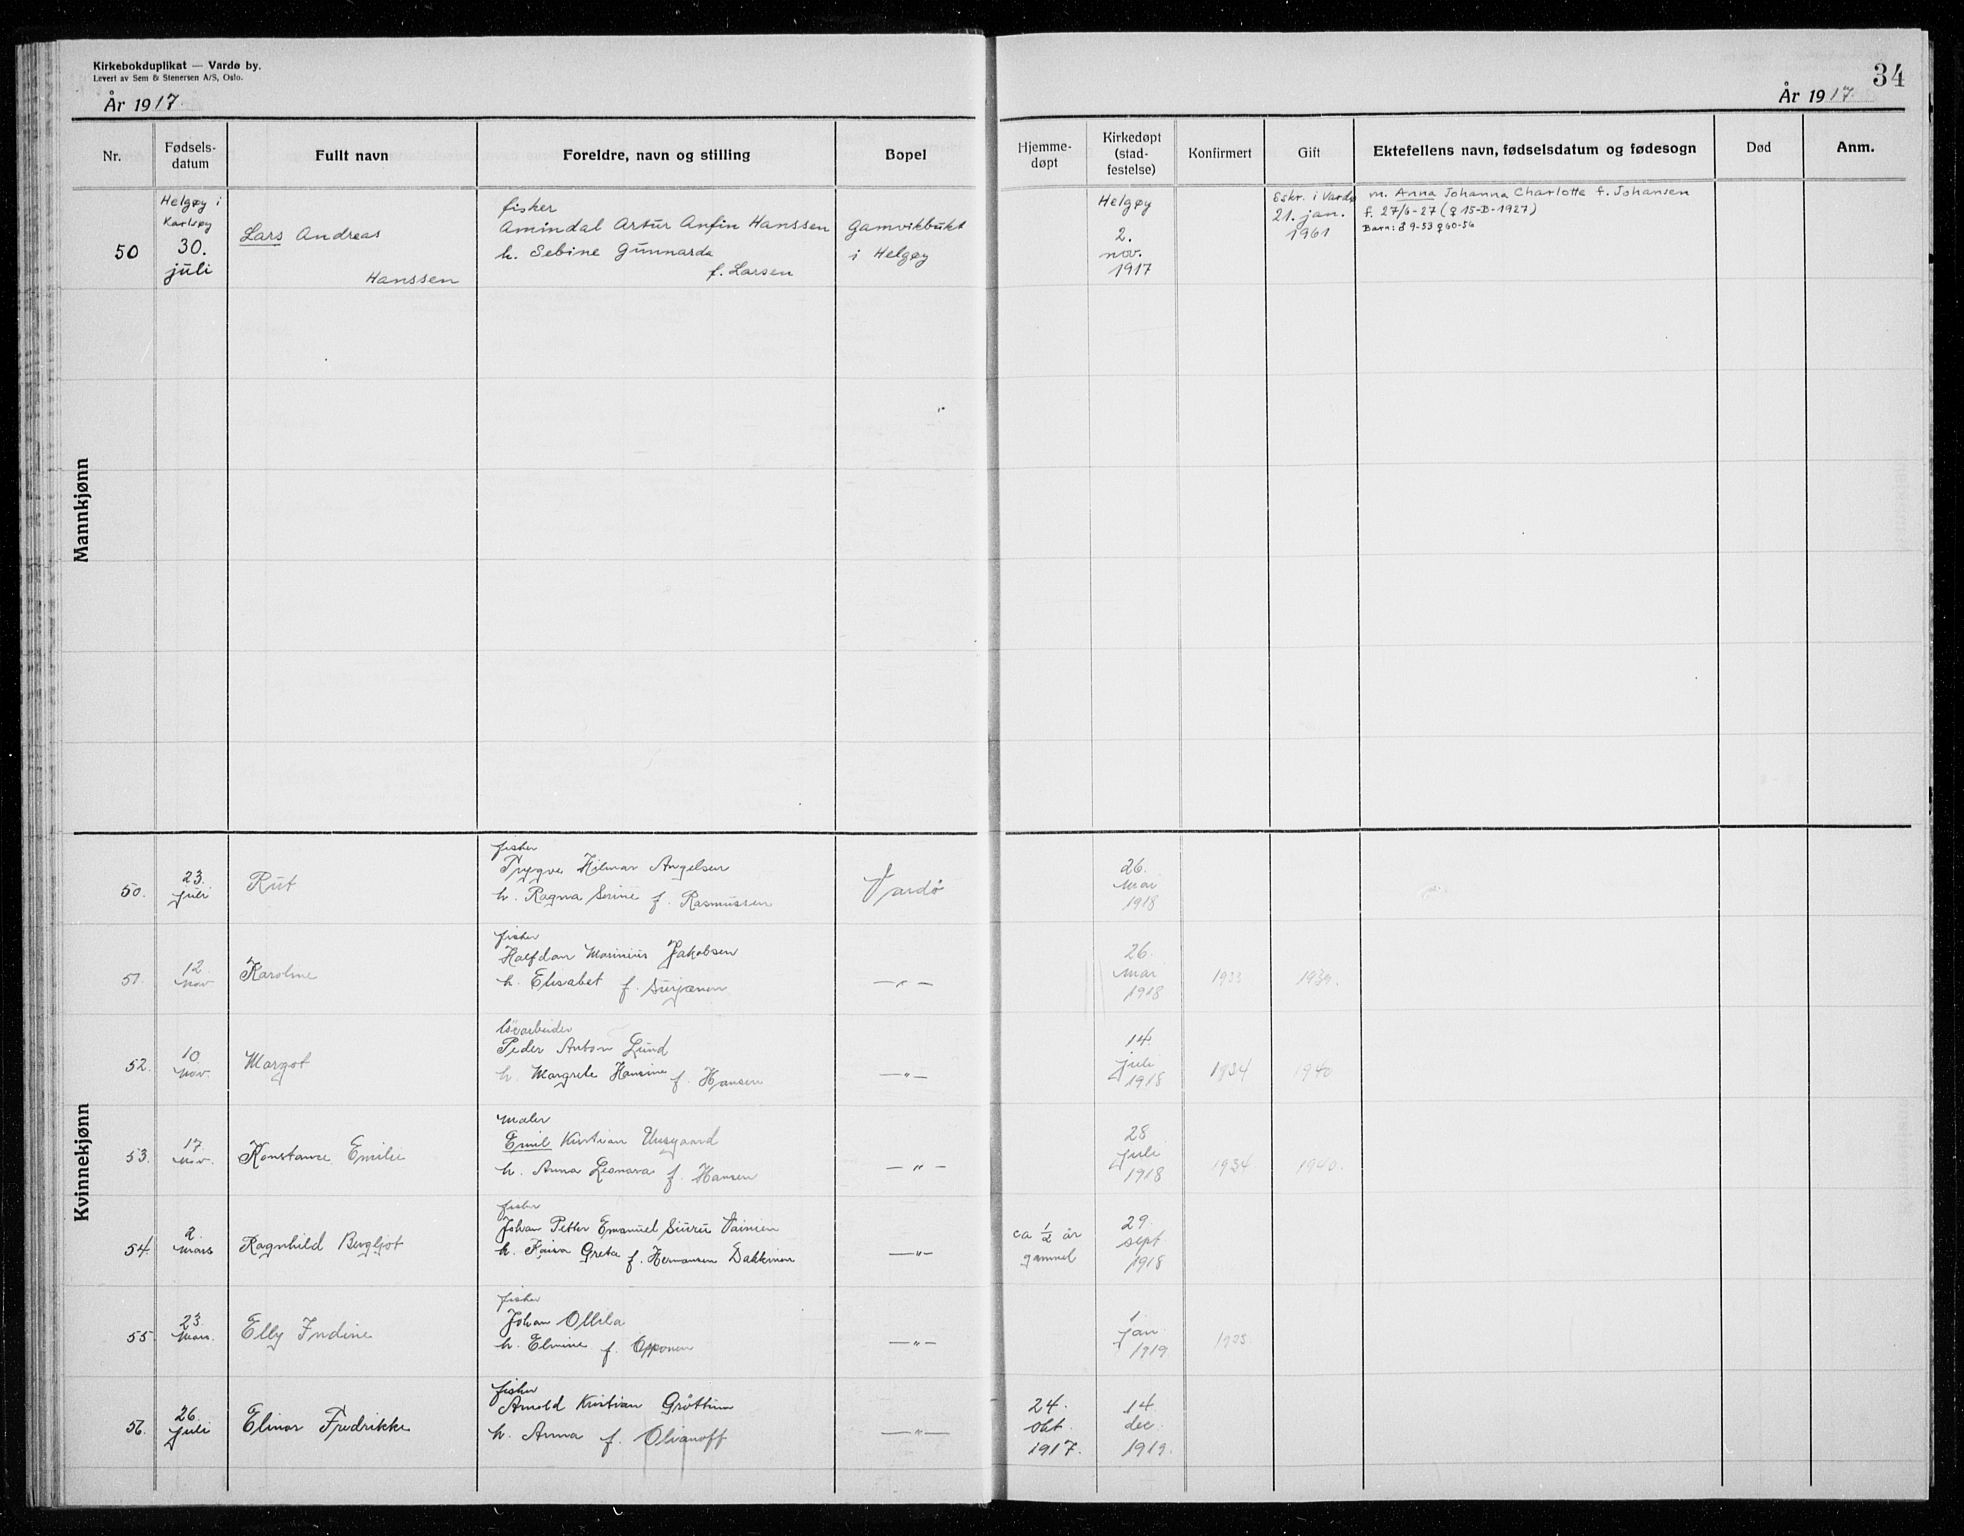 Kirkebokduplikat — Vardø by.
Levert av Sem & Stenersen A/S, Oslo.
År 1917.
34
År 1917.
Nr.
Fødsels-
datum
Fullt navn
Foreldre, navn og stilling
Bopel
Hjemme-
døpt
Kirkedøpt
(stad-
festelse)
Konfirmert
Gift
Ektefellens navn, fødselsdatum og fødesogn
Død
Anm.
Mannkjønn
50
Helgøy i
Karlsøy
30.
juli
Lars Andreas
Hanssen
fisker
Amindal Artur Anfin Hanssen
h. Sebine Gunnarda
f. Larsen
Gamvikbukt
i Helgøy
Helgøy
2.
nov.
1917
Eskr. i Vardø
21. jan.
1961
m. Anna Johanna Charlotte f. Johansen
f. 27/6-27 (♀ 15-B-1927)
Barn: ♂ 9-53 ♀ 60-56
Kvinnekjønn
50.
23.
juli
Rut
fisker
Trygve Hilmar Angelsen
h. Ragna Serine f. Rasmussen
Vardö
26.
mai
1918
51.
12.
nov
Karoline
fisker
Halfdan Marinius Jakobsen
h. Elisabet f.
—„—
26.
mai
1918
1933
1939.
52.
10
nov.
Margot
Peder Anton Lund
h. Margrete Hansine f. Hansen
—„—
14.
juli
1918
1934
1940
53.
17
nov.
Konstanse Emilie
maler
Emil Kristian
h. Anna Leonora f. Hansen
—„—
28
juli
1918
1934
1940.
54.
2.
mars
Ragnhild Bergljot
fisker
Johan Petter Emanuel Siuru Vainien
h. Kaisa Greta f. Hermansen
—„—
ca ½ år
gammel
29.
sept.
1918
55
23.
mars.
Elly Indine
fisker
Johan Ollila
h. Elmine f. Opponen
—„—
1
jan.
1919
56.
26.
juli
Elinor Fredrikke
fisker
Arnold Kristian
h. Anna f. Olianoff
—„—
24.
okt.
1917.
14.
dec.
1919.